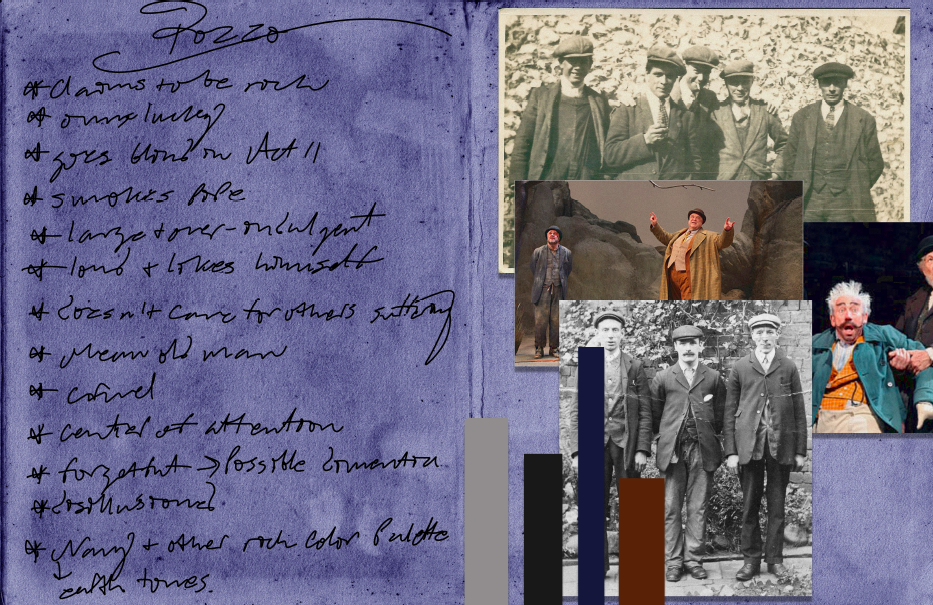 Pozzo
* claims to be rich
* owns lucky
* goes blind in Act II
* smokes pipe
* large + over-indulgent
* loud + likes himself
* doesn't care for others suffering
* Mean old man
* cruel
* center of attention
* forgetful → Possible Dementia
* disillusioned
* Navy + other rich Color Palette
↓ earth tones.